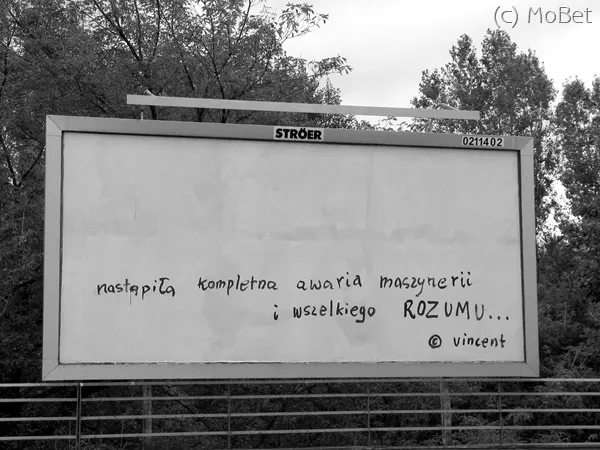 (c) MoBet
STRÖER
0211402
nastąpiłą kompletna awaria maszynerii
i wszelkiego ROZUMU...
© vincent